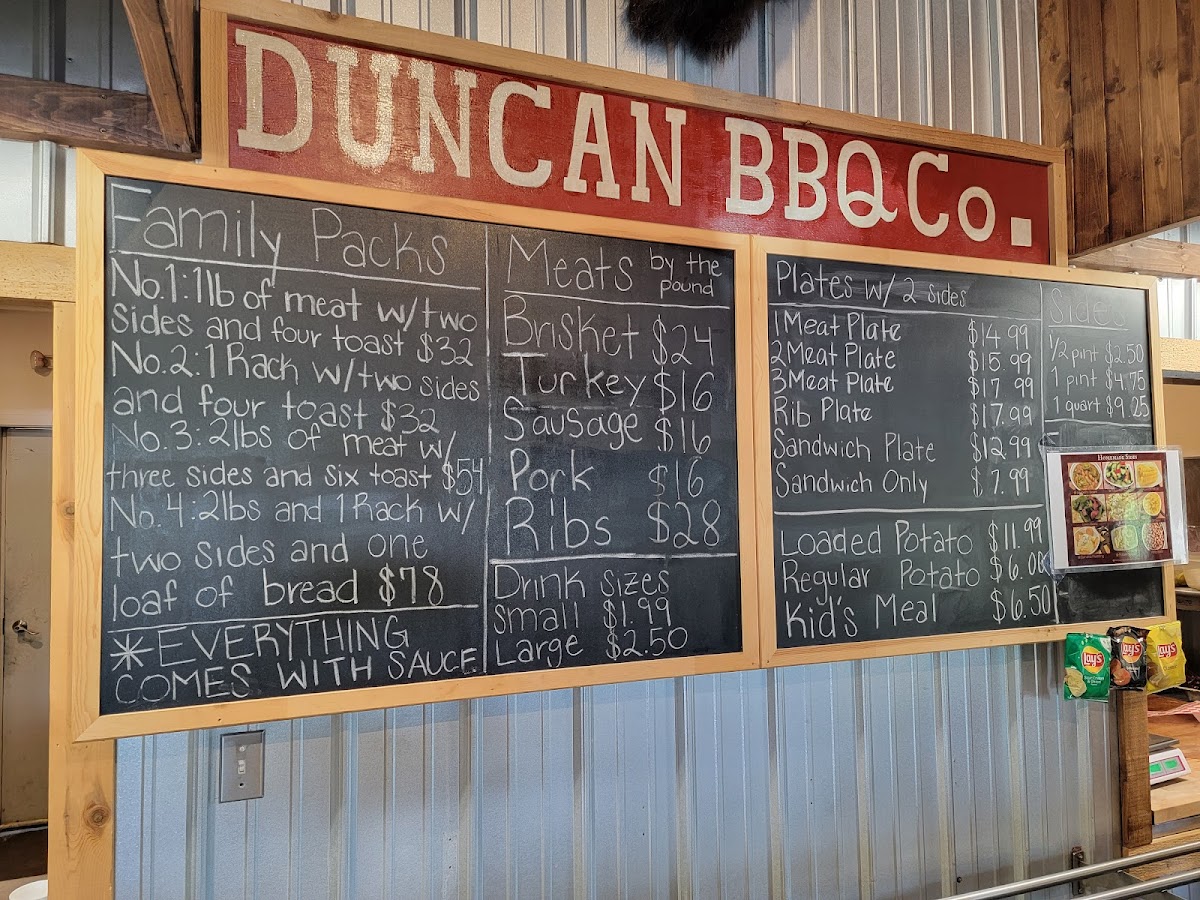 DUNCAN BBQ Co.
Family Packs
No.1:1lb of meat w/two
sides and four toast $32
No.2:1 Rack w/two sides
and four toast $32
No.3:2lbs of meat w/
three sides and six toast $54
No.4:2lbs and 1 Rack w/
two sides and one
loaf of bread $78
*EVERYTHING
COMES WITH SAUCE
Meats by the
pound
Brisket $24
Turkey $16
Sausage $16
Pork $16
Ribs $28
Drink sizes
small $1.99
Large $2.50
Plates w/ 2 sides
1 Meat Plate $14.99
2 Meat Plate $15.99
3 Meat Plate $17.99
Rib Plate $17.99
Sandwich Plate $12.99
Sandwich Only $7.99
Loaded Potato $11.99
Regular Potato $6.00
Kid's Meal $6.50
Sides
1/2 pint $2.50
1 pint $4.75
1 quart $9.25
HOMEMADE SIDES
Lay's
Lay's
Lay's